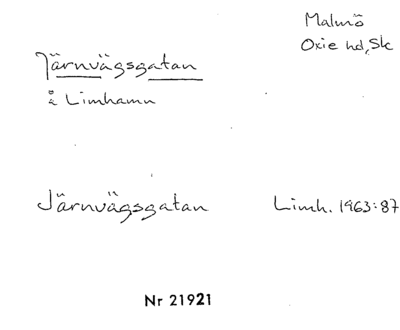 Malmö
Oxie hd, Sk
Järnvägsgatan
å Limhamn
Järnvägsgatan Limh. 1963:87
Nr 21921